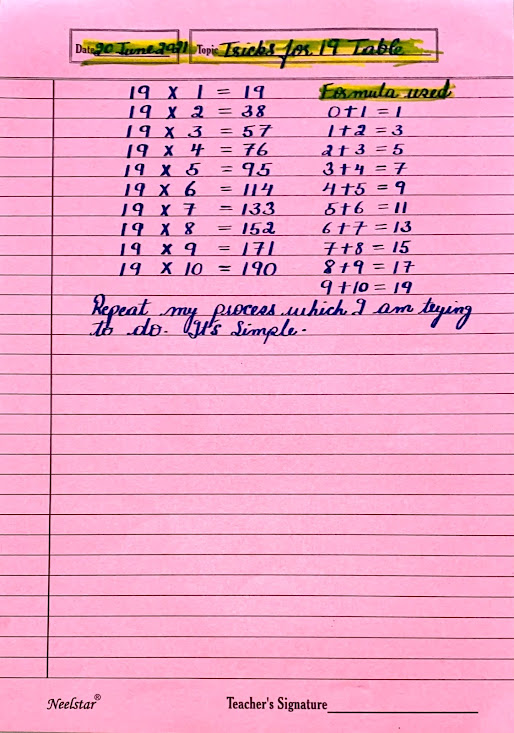 Date 20 June 2021 Topic Tricks for 19 Table
19 X 1 = 19 Formula used
19 X 2 = 38 0+1 = 1
19 X 3 = 57 1+2 = 3
19 X 4 = 76 2+3 = 5
19 X 5 = 95 3+4 = 7
19 X 6 = 114 4+5 = 9
19 X 7 = 133 5+6 = 11
19 X 8 = 152 6+7 = 13
19 X 9 = 171 7+8 = 15
19 X 10 = 190 8+9 = 17
9+10 = 19
Repeat my process which I am trying
to do. It's Simple.
Neelstar® Teacher's Signature